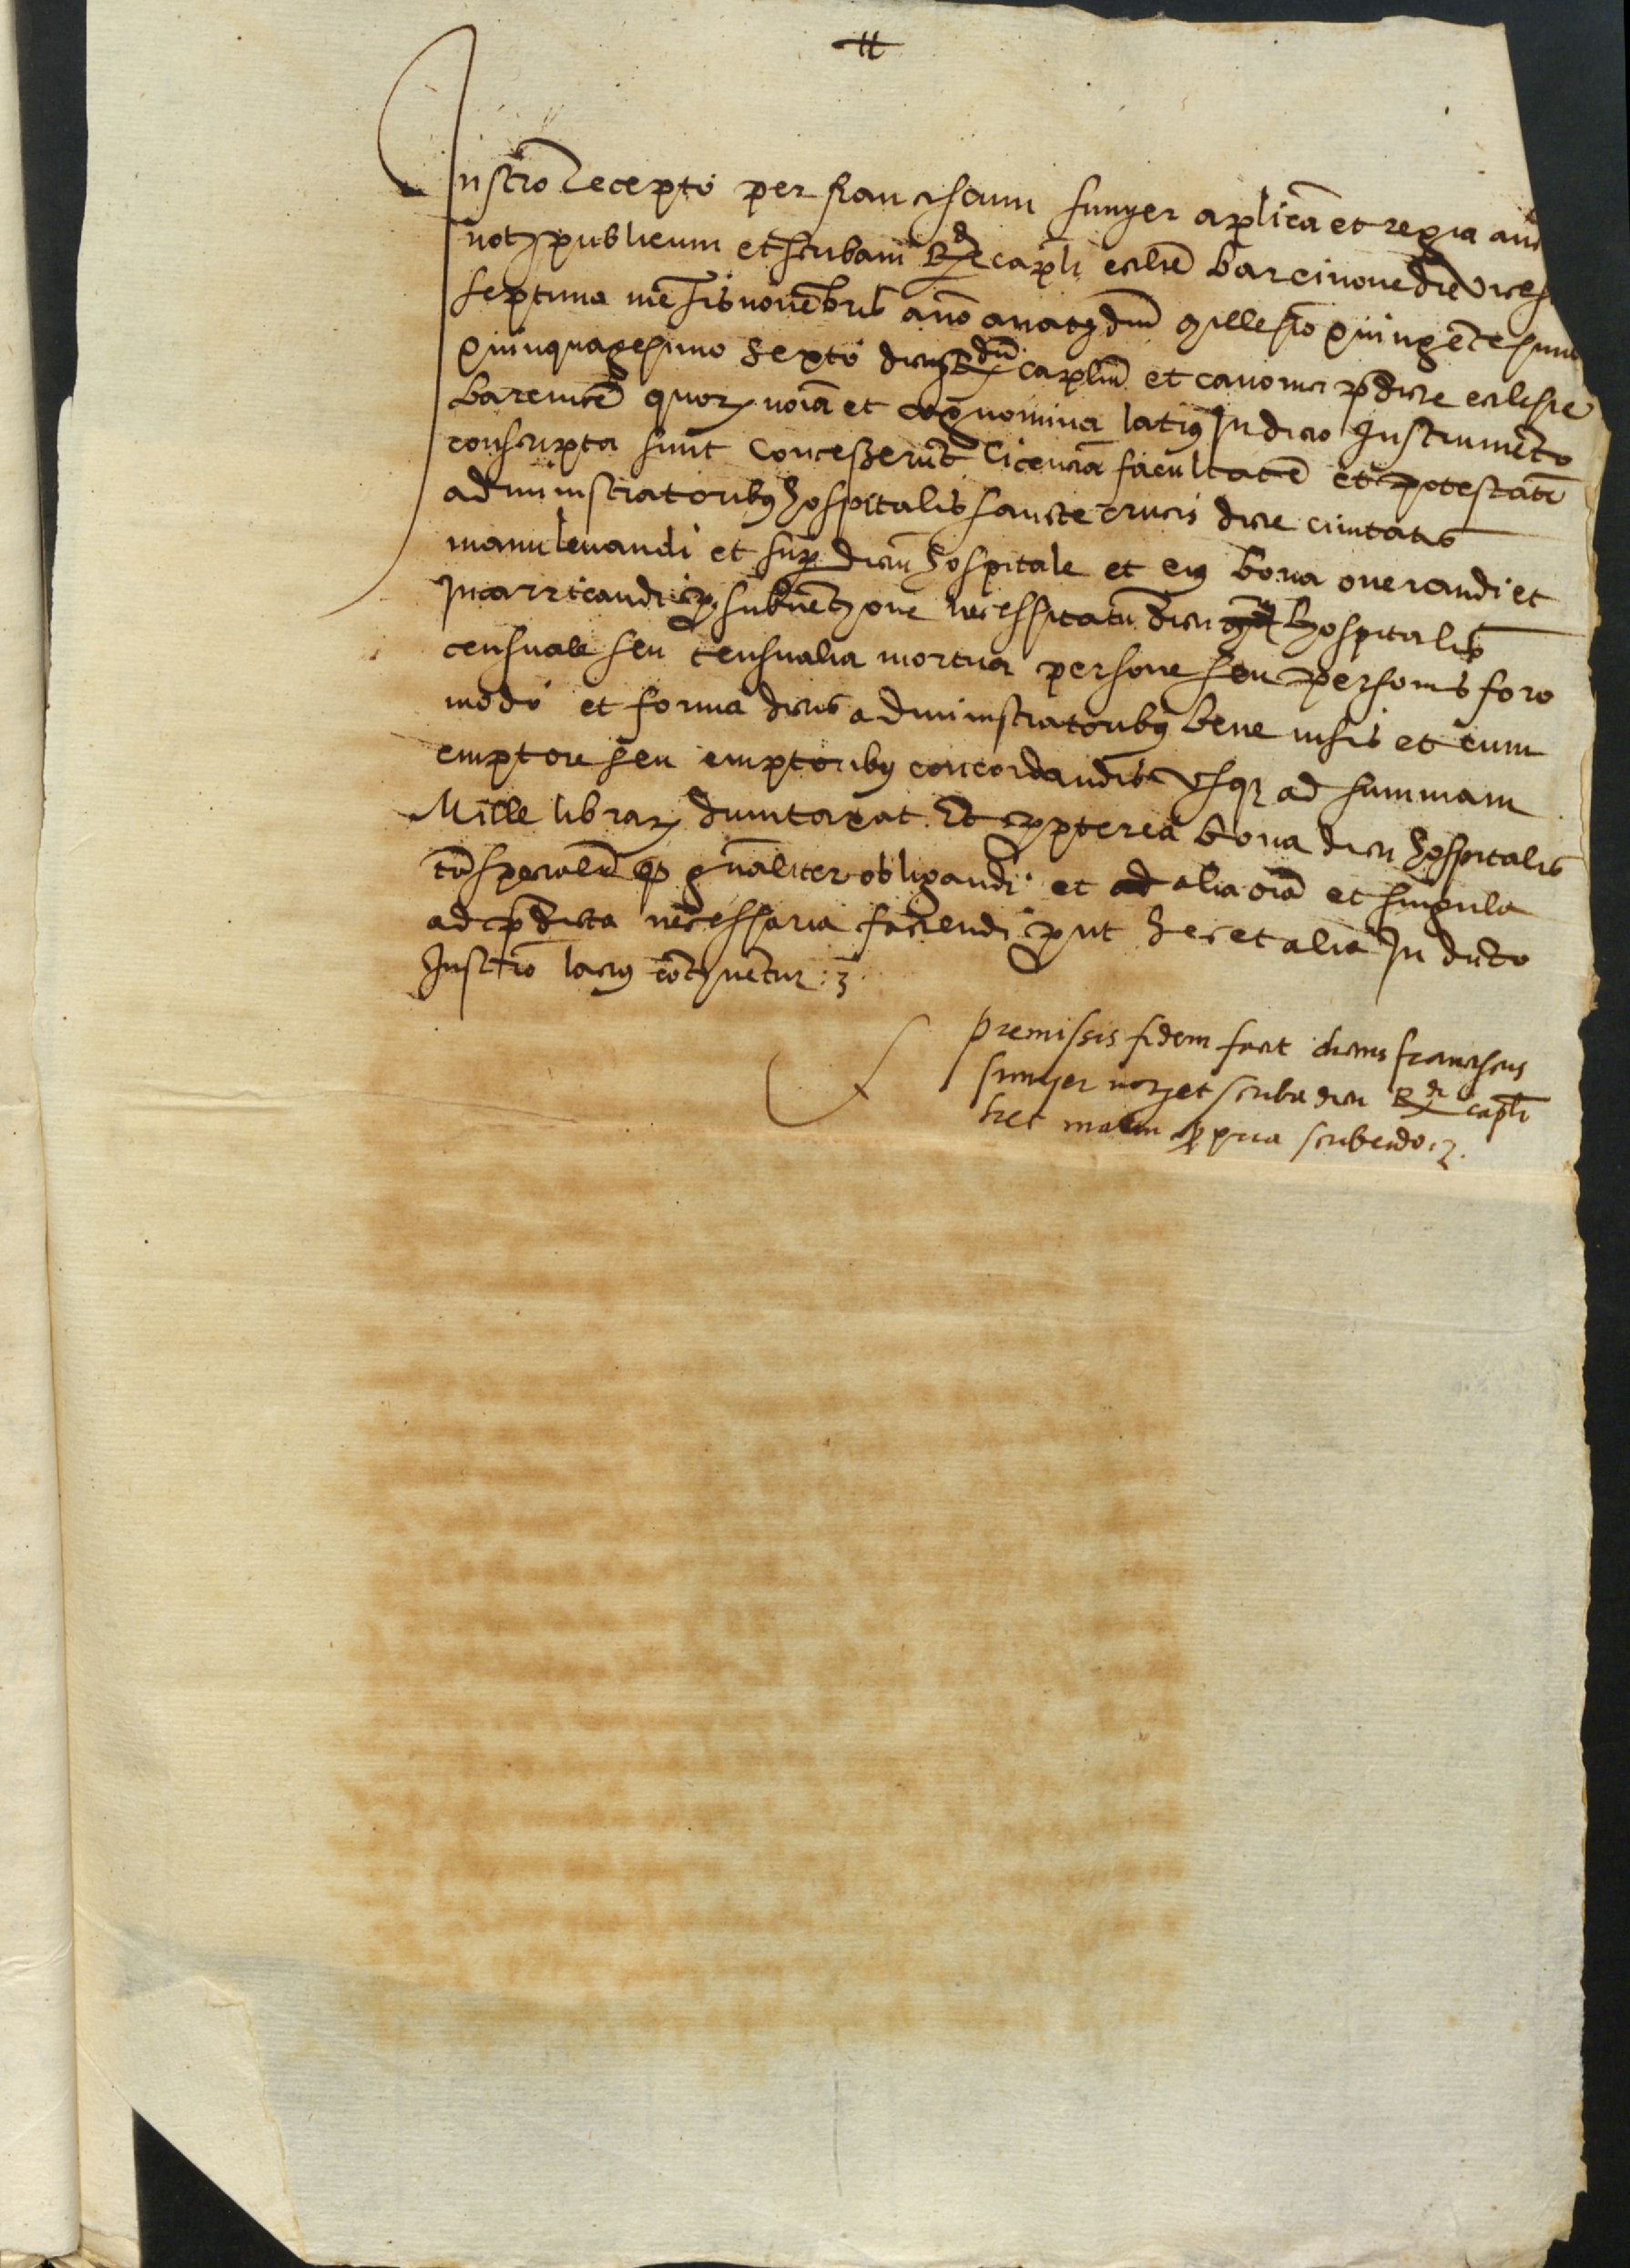 Instro recepto per franciscum sunyer aplica et regia au
not publicum et scribam Rdi capli eclie barcinone die vices
septima mensis novebris ano a nate dni millesio quingetesimo
quinquagesimo sexto dictu Rdu caplum et canonici pdicte eclesie
barcinone quor noia et cognomina latius In dicto Instrumeto
conscripta sunt Concesserunt licencia facultate et potestate
administratoribus hospitalis sancte crucis dicte civitatis
manulevandi et sup dictu hospitale et eius bona onerandi et
Incarricandi p subvencione necessitatu dicti hospitalis
censuale seu censualia mortua persone seu personis foro
modo et forma dictis administratoribus bene visis et cum
emptore seu emptoribus concordandis vsq ad summam
Mille librar dumtaxat Et ppterea bona dicti hospitalis
ta specialit q gnaliter obligandi et alia oia et singula
ad pdicta necessaria faciendi put hec et alia In dicto
Instro lacius continetur
premissis fidem facit dictus franciscus
sunyer not et scriba dicti Rdi capli
hec manu ppria scribedo